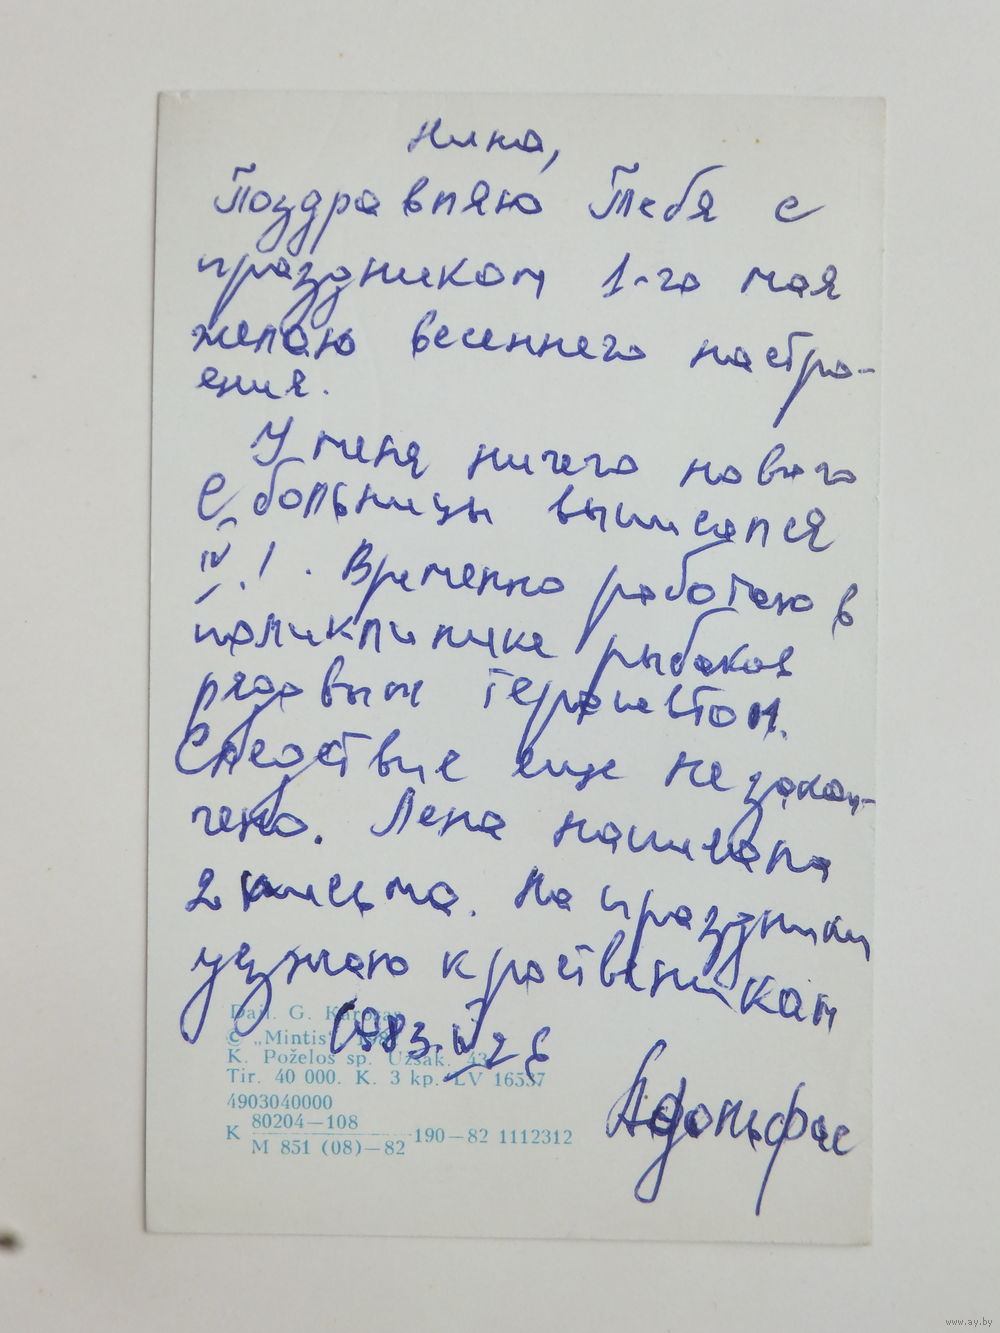 Нина,
Поздравляю Тебя с
праздником 1-го мая
желаю весеннего настро-
ения.
У меня ничего нового
С больницы выписался
IV.1. Временно работаю в
поликлинике рыбаков
рядовым терапевтом.
Следствие еще не закон-
чено. Лена написала
2 письма. На праздники
уезжаю к родственникам
1983.IV 26
Адольфас
Dail. G. Karosas
© „Mintis“ 198
K. Poželos sp. Užsak. 43
Tir. 40 000. K. 3 kp. LV 16537
4903040000
K 80204—108
M 851 (08)—82 190—82 1112312
www.ay.by